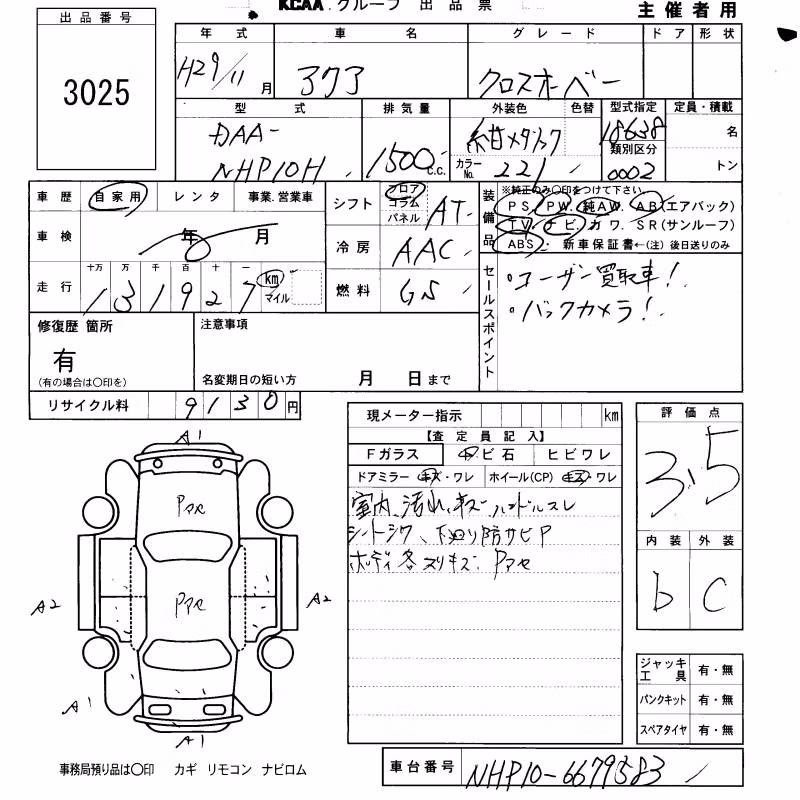 KCAA グループ 出品票
主催者用
出品番号
3025
年式 車名 グレード ドア 形状
H29/11月 アクア クロスオーバー
型式 排気量 外装色 色替 型式指定 定員・積載
DAA-
NHP10H 1500 C.C. 紺メタリック 18638 名
カラーNo. 221 類別区分 0002 トン
車歴 自家用 レンタ 事業.営業車
車検 年 月
走行 十万 万 千 百 十 一
131927 km マイル
シフト フロア コラム パネル AT
冷房 AAC
燃料 GS
装備品
※純正のみ○印をつけて下さい
PS. PW. 純AW. AB(エアバック)
TV. ナビ. カワ. SR(サンルーフ)
ABS・ 新車保証書←(注) 後日送りのみ
セールスポイント
・ユーザー買取車!
・バックカメラ!
修復歴 箇所
有
(有の場合は○印を)
注意事項
名変期日の短い方 月 日まで
リサイクル料 9130円
A1
Pアセ
A2
Pアセ
A2
A1
A1
事務局預り品は○印 カギ リモコン ナビロム
現メーター指示 km
【査定員記入】
Fガラス キ ビ石 ヒビワレ
ドアミラー キズ・ワレ ホイール(CP) キズ・ワレ
室内、汚れ、キズ ハンドルスレ
シートシワ、下回り防サビP
ボディ各スリキズ. Pアセ
評価点
3.5
内装 外装
b C
ジャッキ工具 有・無
パンクキット 有・無
スペアタイヤ 有・無
車台番号 NHP10-6679583